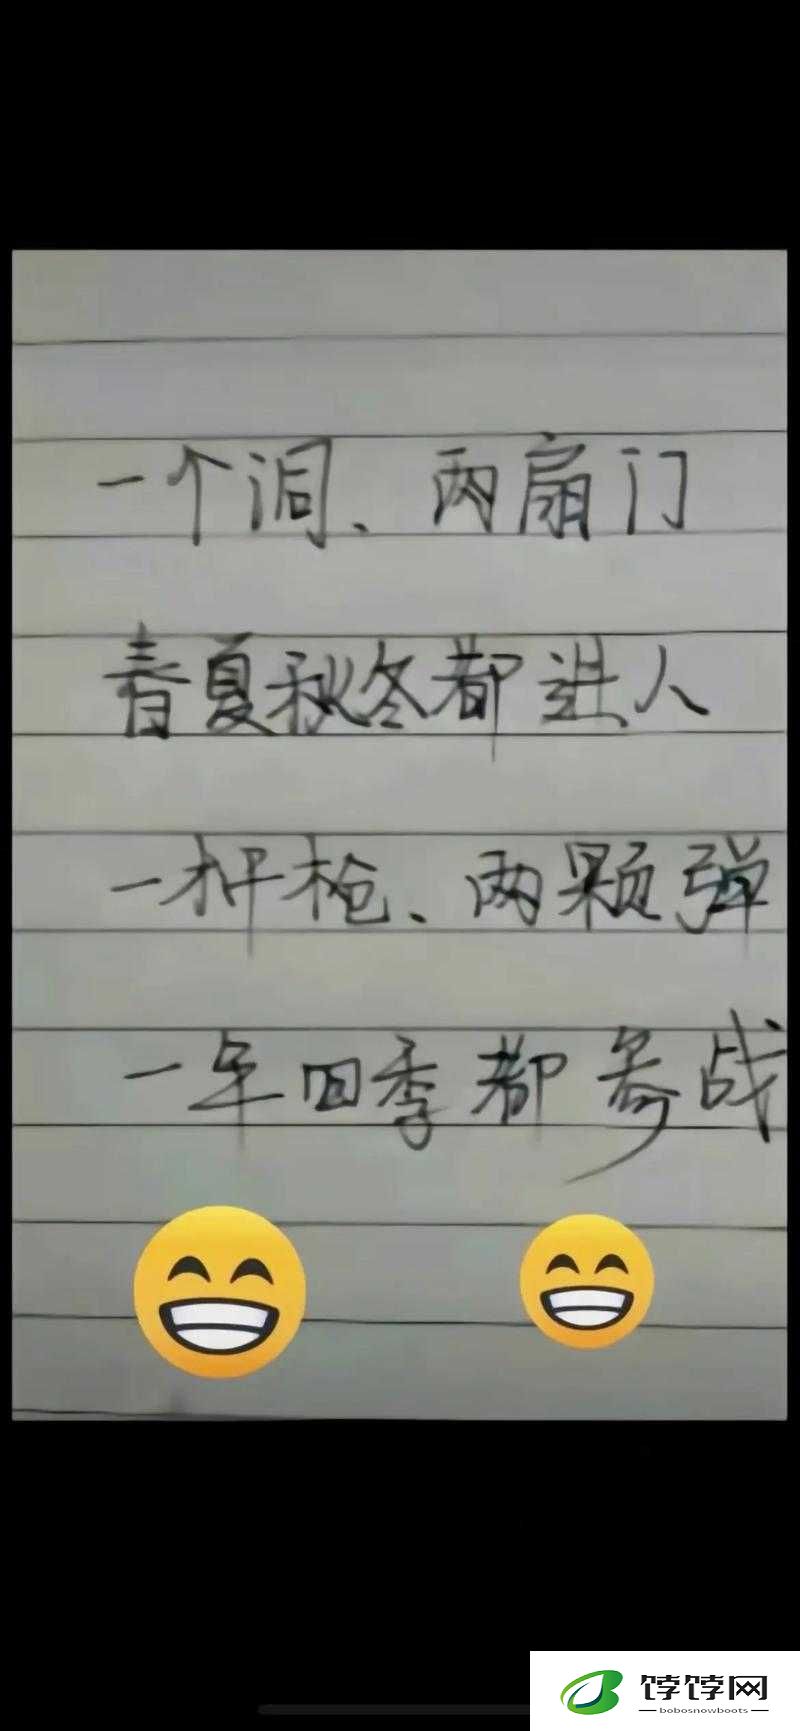 一个洞、两扇门
春夏秋冬都进人
一杆枪、两颗弹
一年四季都参战
饽饽网
bobosnowboots